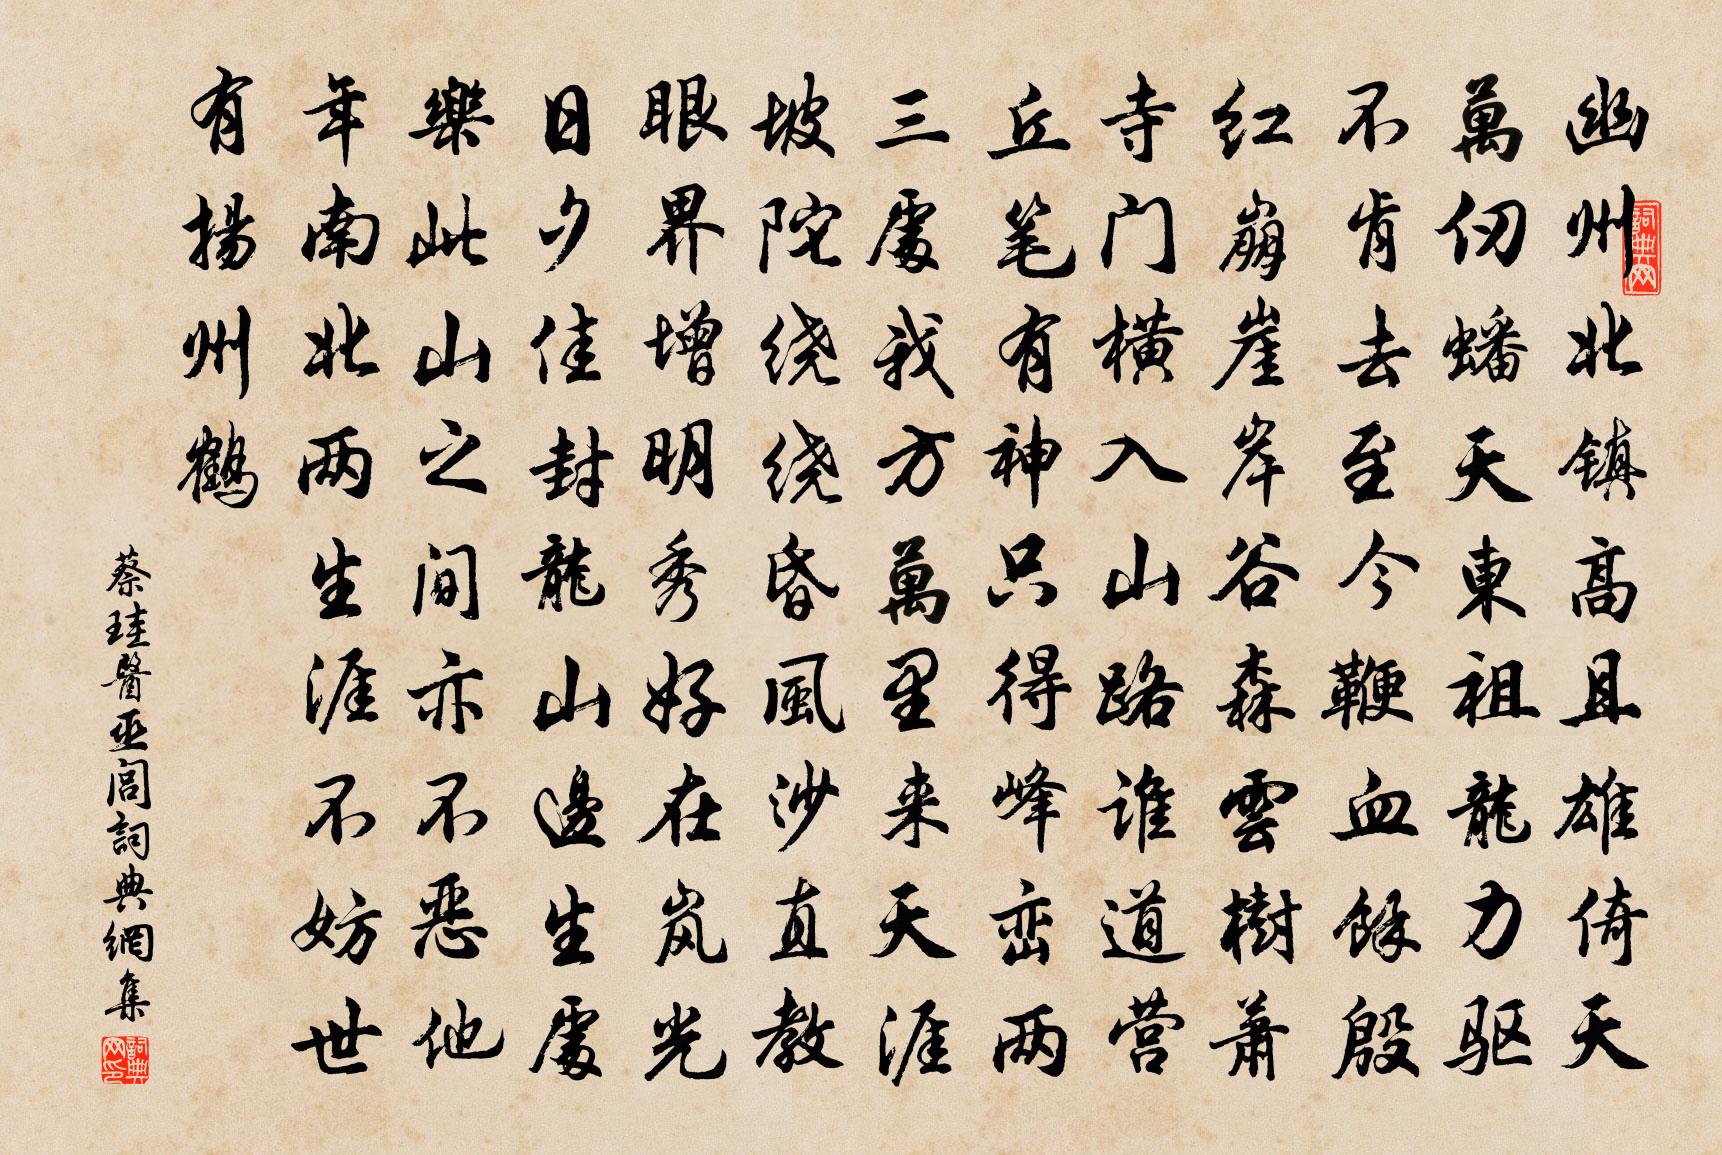 幽州北镇高且雄倚天
萬仞蟠天東祖龍力驱
不肯去至今鞭血馀殷
红崩崖岸谷森雲樹萧
寺门横入山路谁道营
丘笔有神只得峰峦两
三處我方萬里来天涯
坡陀绕绕昏風沙直教
眼界增明秀好在岚光
日夕佳封龍山邊生處
樂此山之间亦不恶他
年南北两生涯不妨世
有揚州鹤
蔡珪醫巫閭詞典網集
詞典网
詞典网印